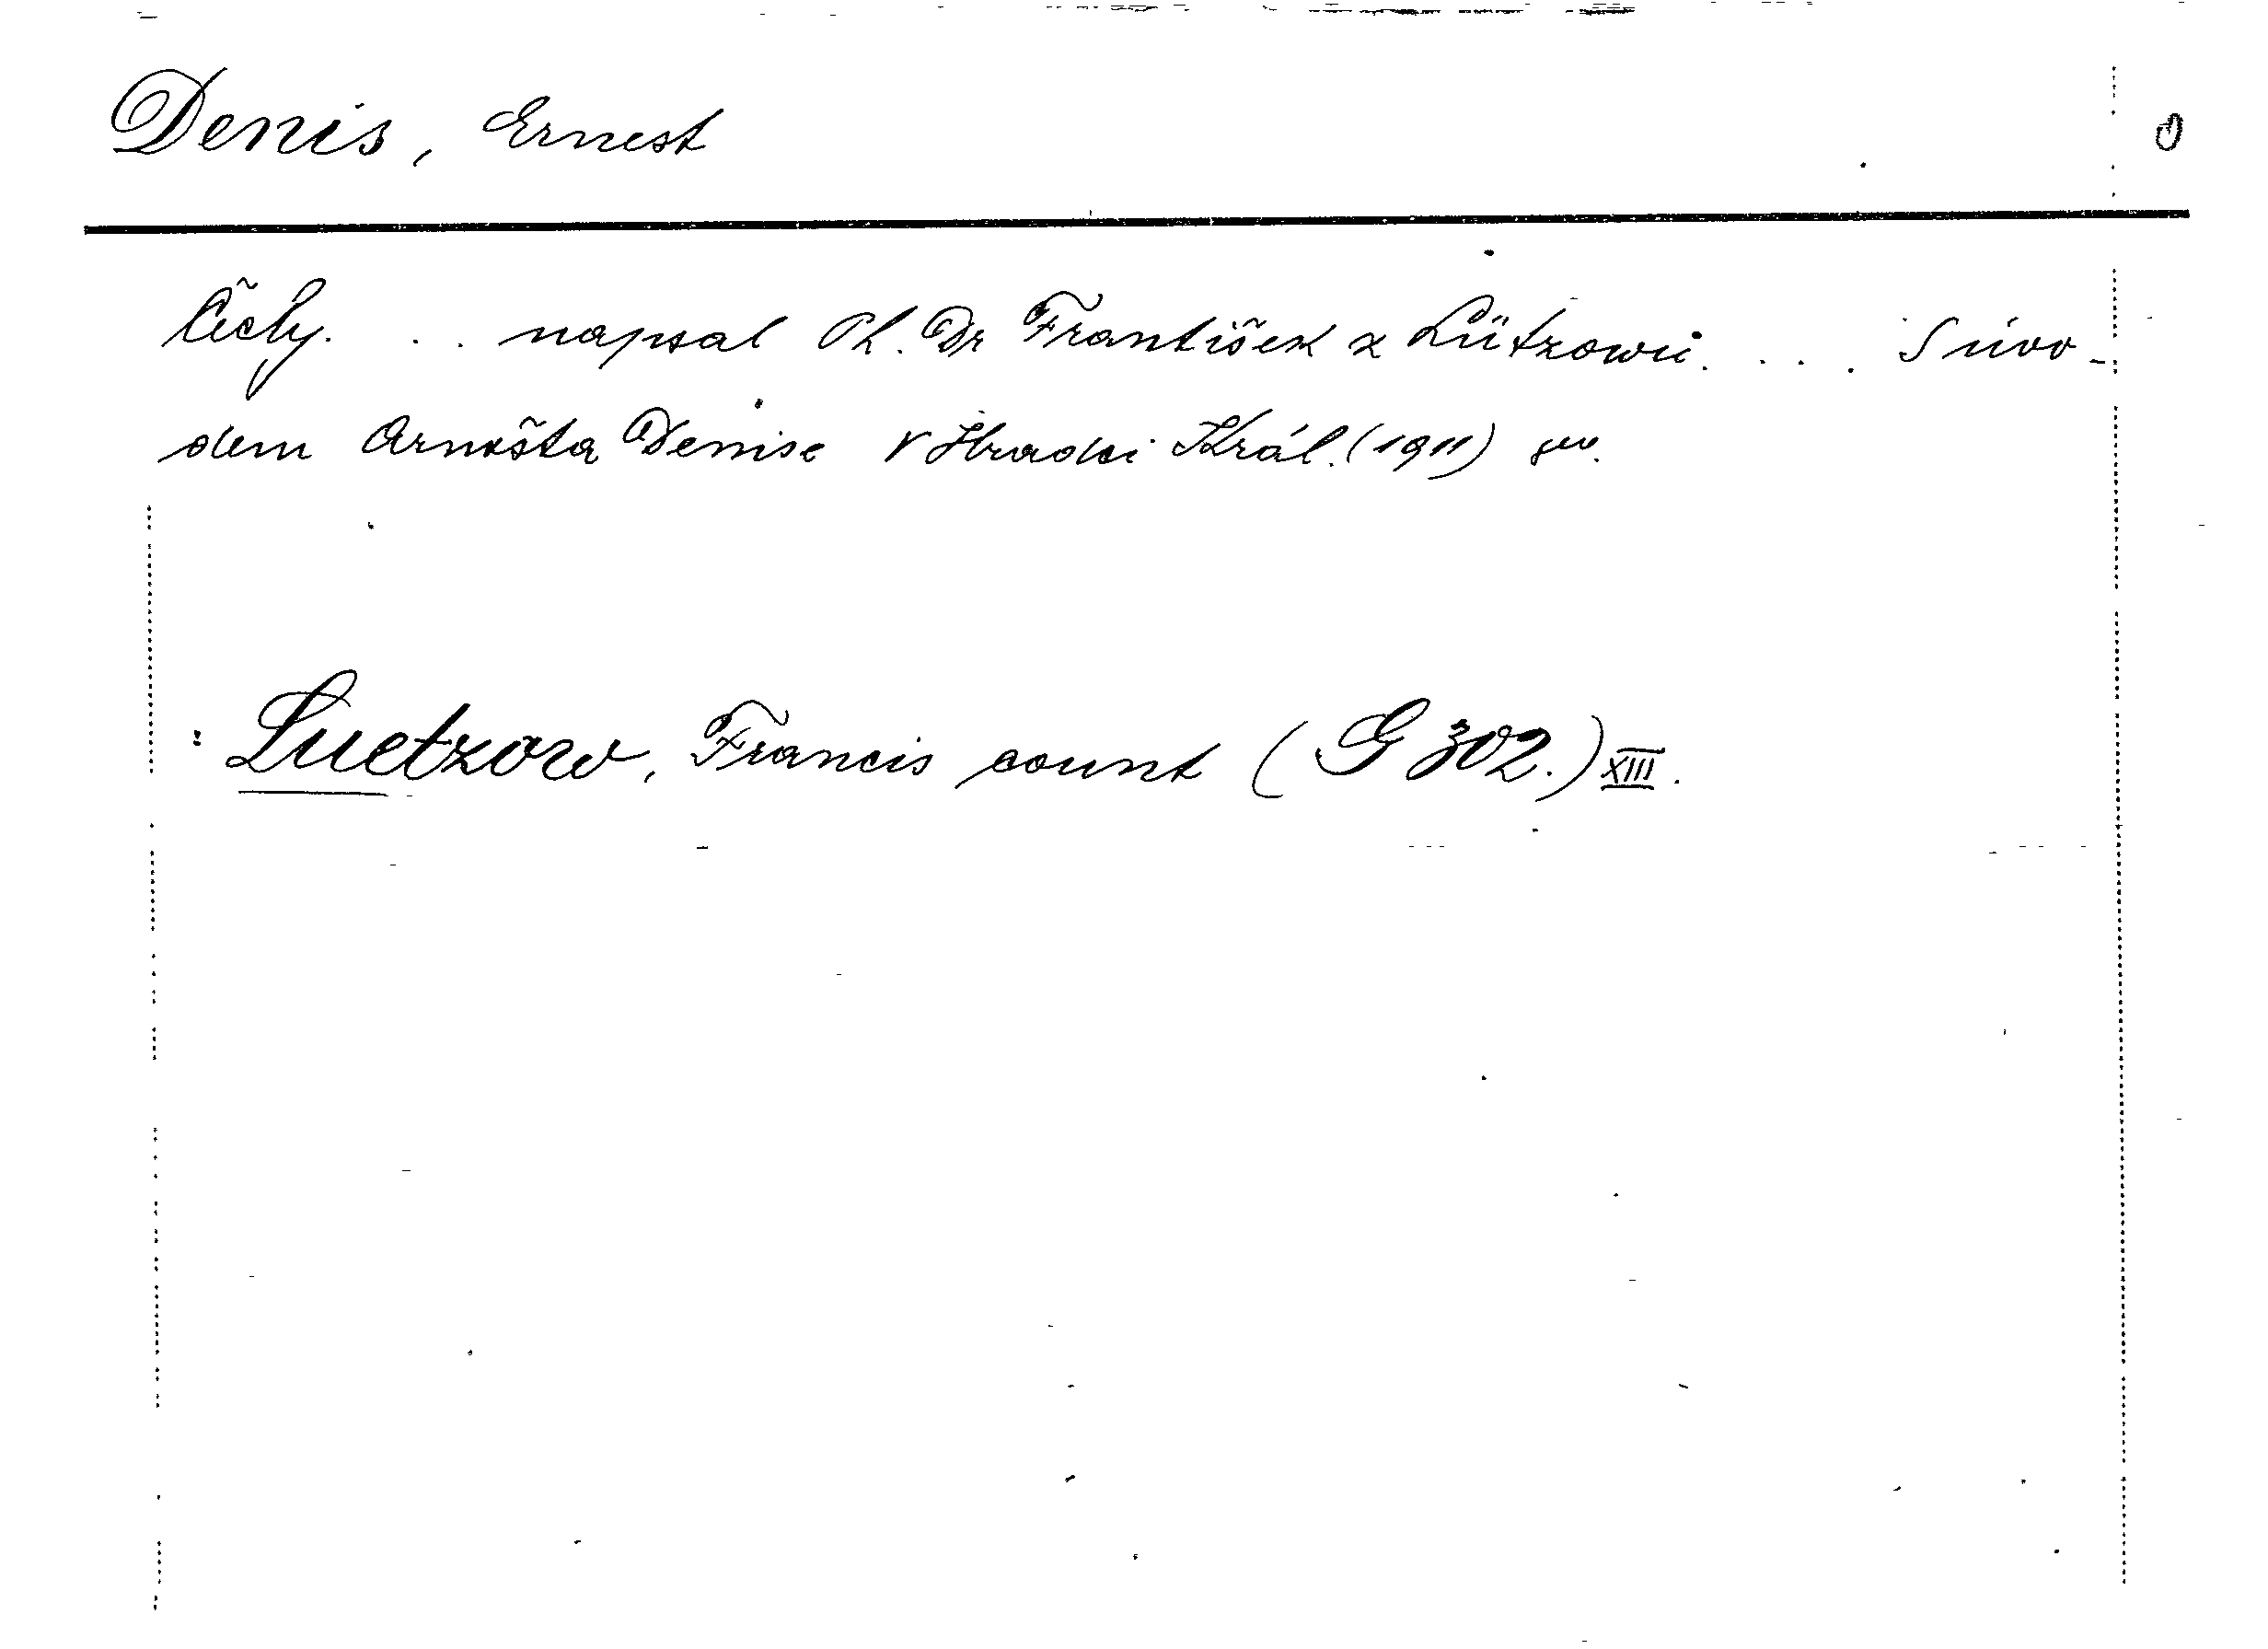 Denis, Ernest
Čechy. . . napsal Ph. Dr František z Lützowů. . . . S úvo-
dem Arnošta Denise V Hradci Král. (1911) gr.
: Luetzow, Francis count (G 302.) XIII.